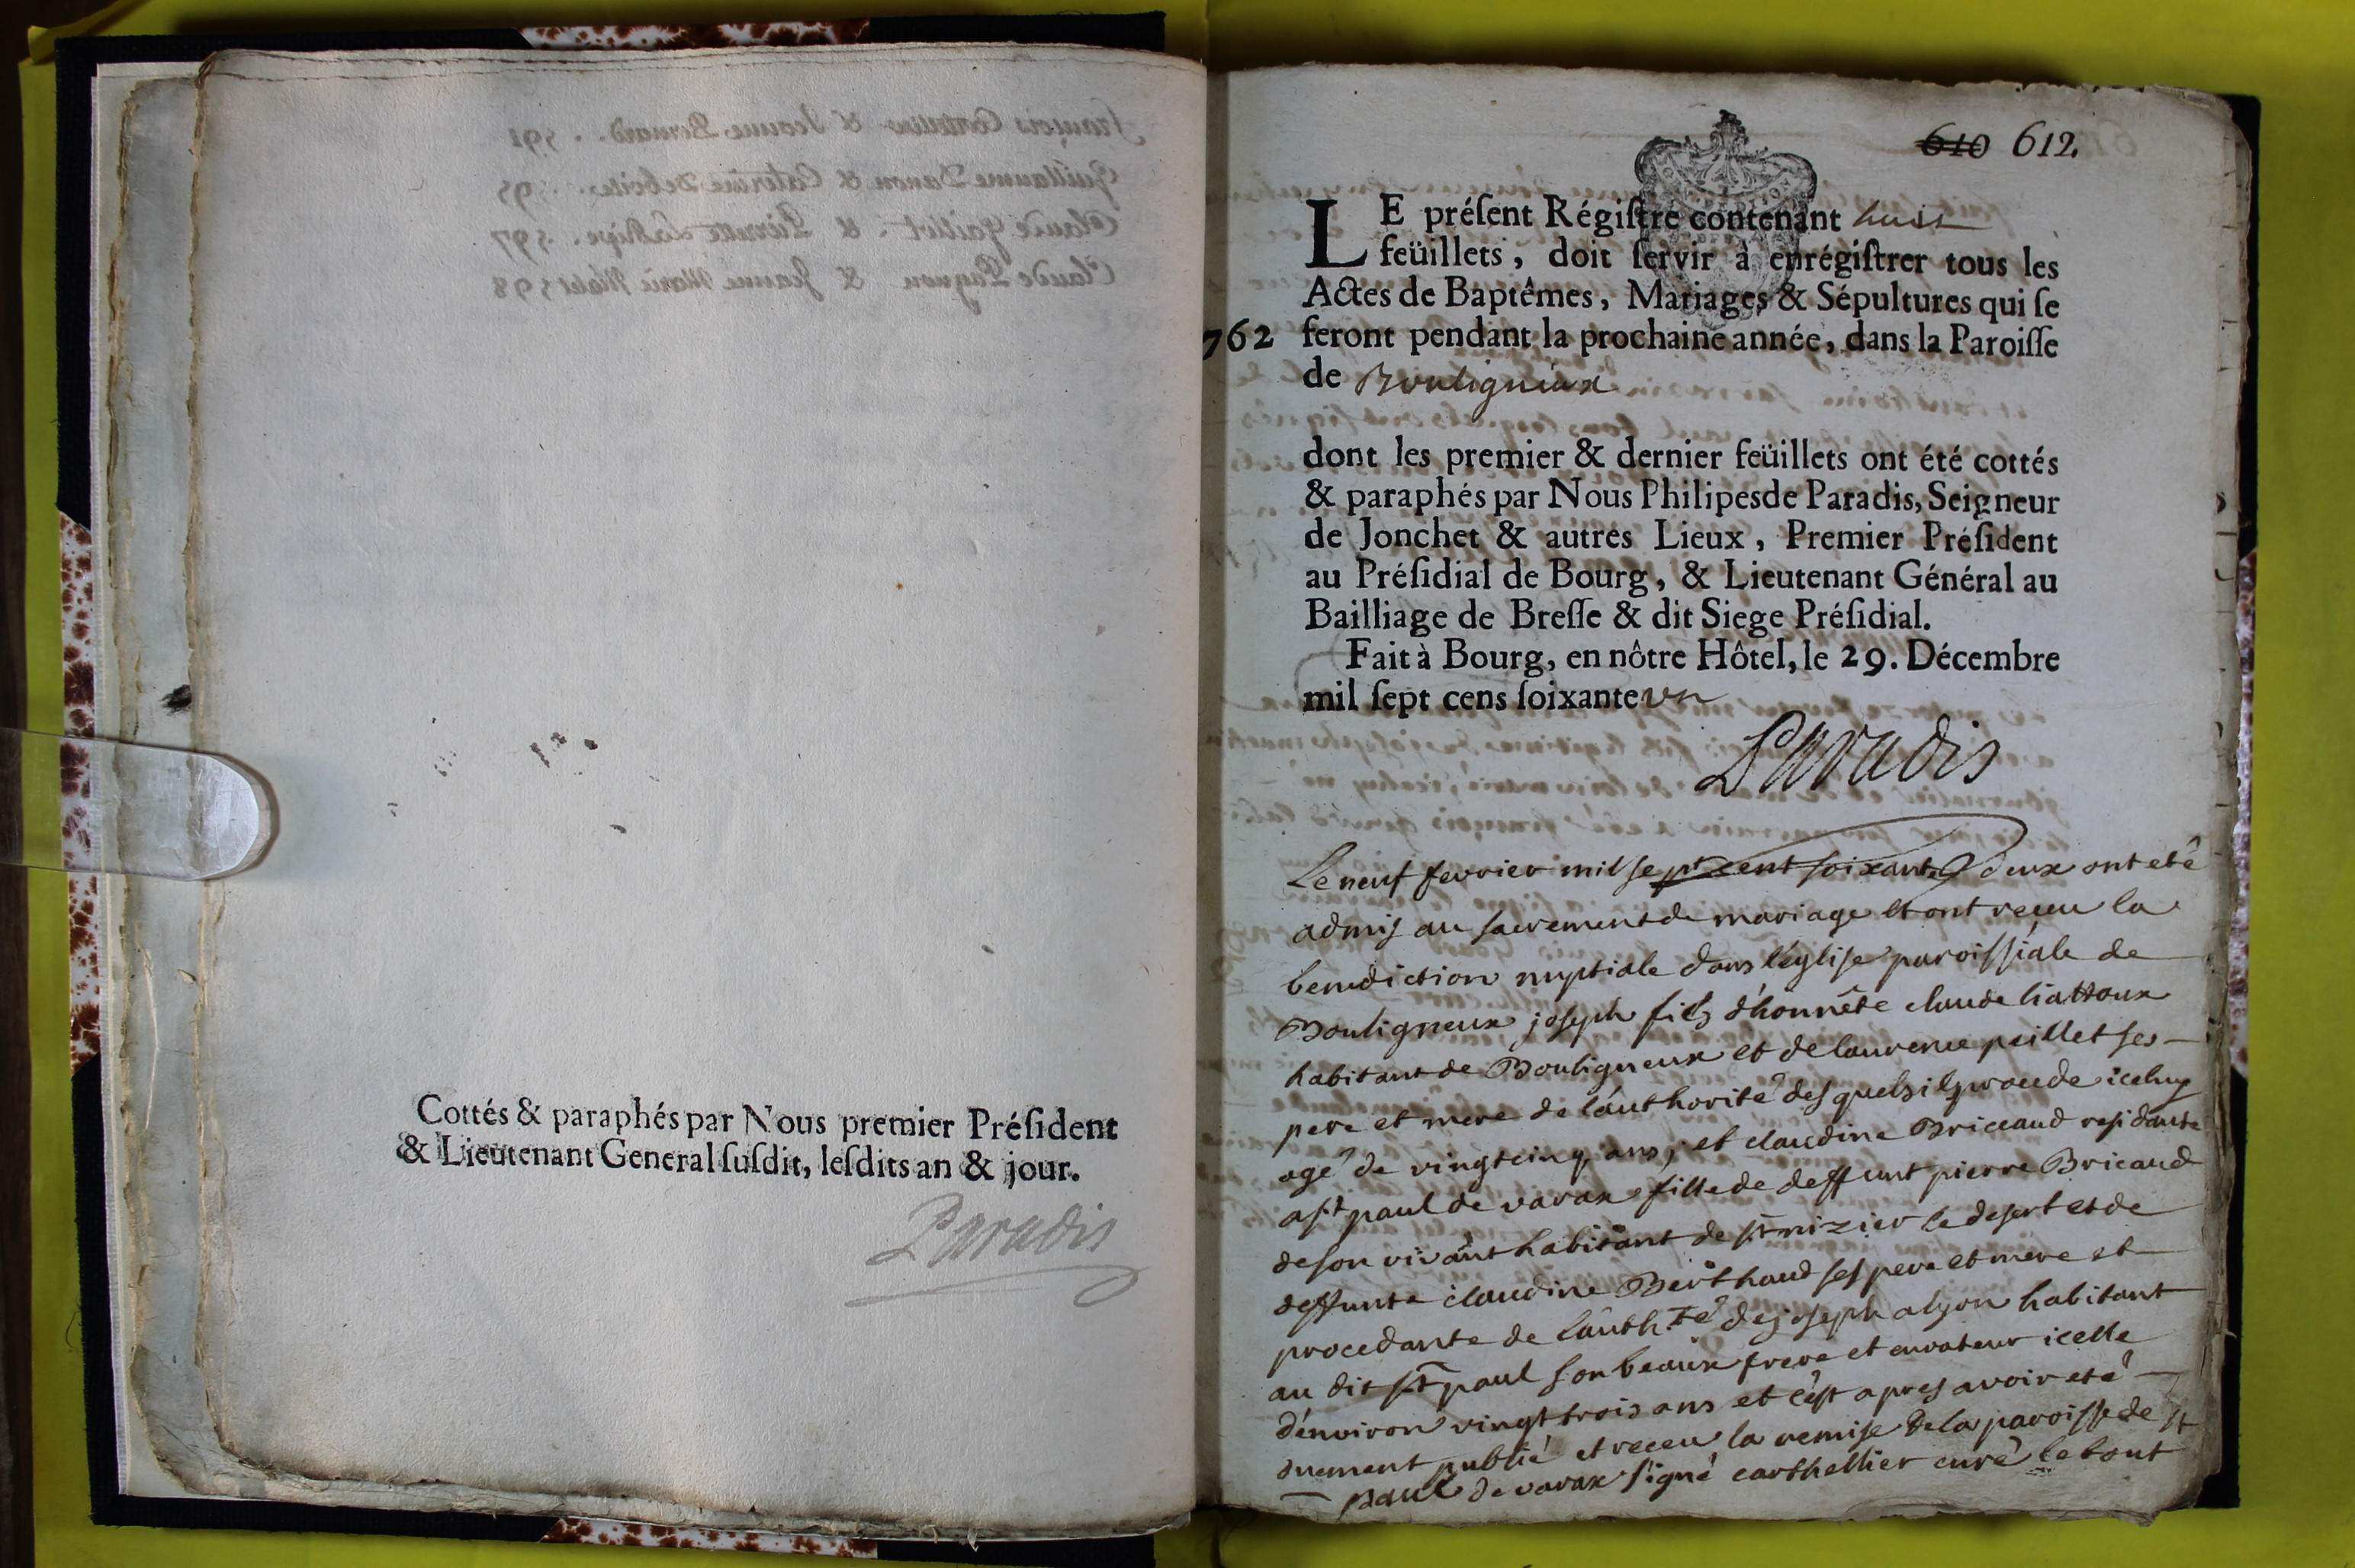 Cottés & paraphés par Nous premier Préſident
& Lieutenant General ſuſdit, leſdits an & jour.
Paradis
610 612.
LE préſent Régiſtre contenant huit
feüillets, doit ſervir à enrégiſtrer tous les
Actes de Baptêmes, Mariages & Sépultures qui ſe
762 feront pendant la prochaine année, dans la Paroiſſe
de Bouligneux
dont les premier & dernier feüillets ont été cottés
& paraphés par Nous Philipes de Paradis, Seigneur
de Jonchet & autres Lieux, Premier Préſident
au Préſidial de Bourg, & Lieutenant Général au
Bailliage de Breſſe & dit Siege Préſidial.
Fait à Bourg, en nôtre Hôtel, le 29. Décembre
mil ſept cens ſoixante un
Paradis
Le neuf fevrier mil sept cent soixante deux ont eté
admis au sacrement de mariage et ont receu la
benediction nuptiale dans l'église paroissiale de
Bouligneux joseph fils d'honnête claude liattoux
habitant de Bouligneux et de laurence peillet ses
pere et mere de l'authorité desquels il procede iceluy
agé de vingt cinq ans, et claudine Briccaud residante
a st paul de varax fille de deffunt pierre Bricaud
de son vivant habitant de st nizier le desert et de
deffunte claudine Berthaud ses pere et mere et
procedante de l'auth.té de joseph alyon habitant
au dit st paul son beaux frere et curateur icelle
d'environ vingt trois ans et c'est apres avoir eté
duement publié et receu la remise de la paroisse de st
paul de varax signé carthellier curé le tout